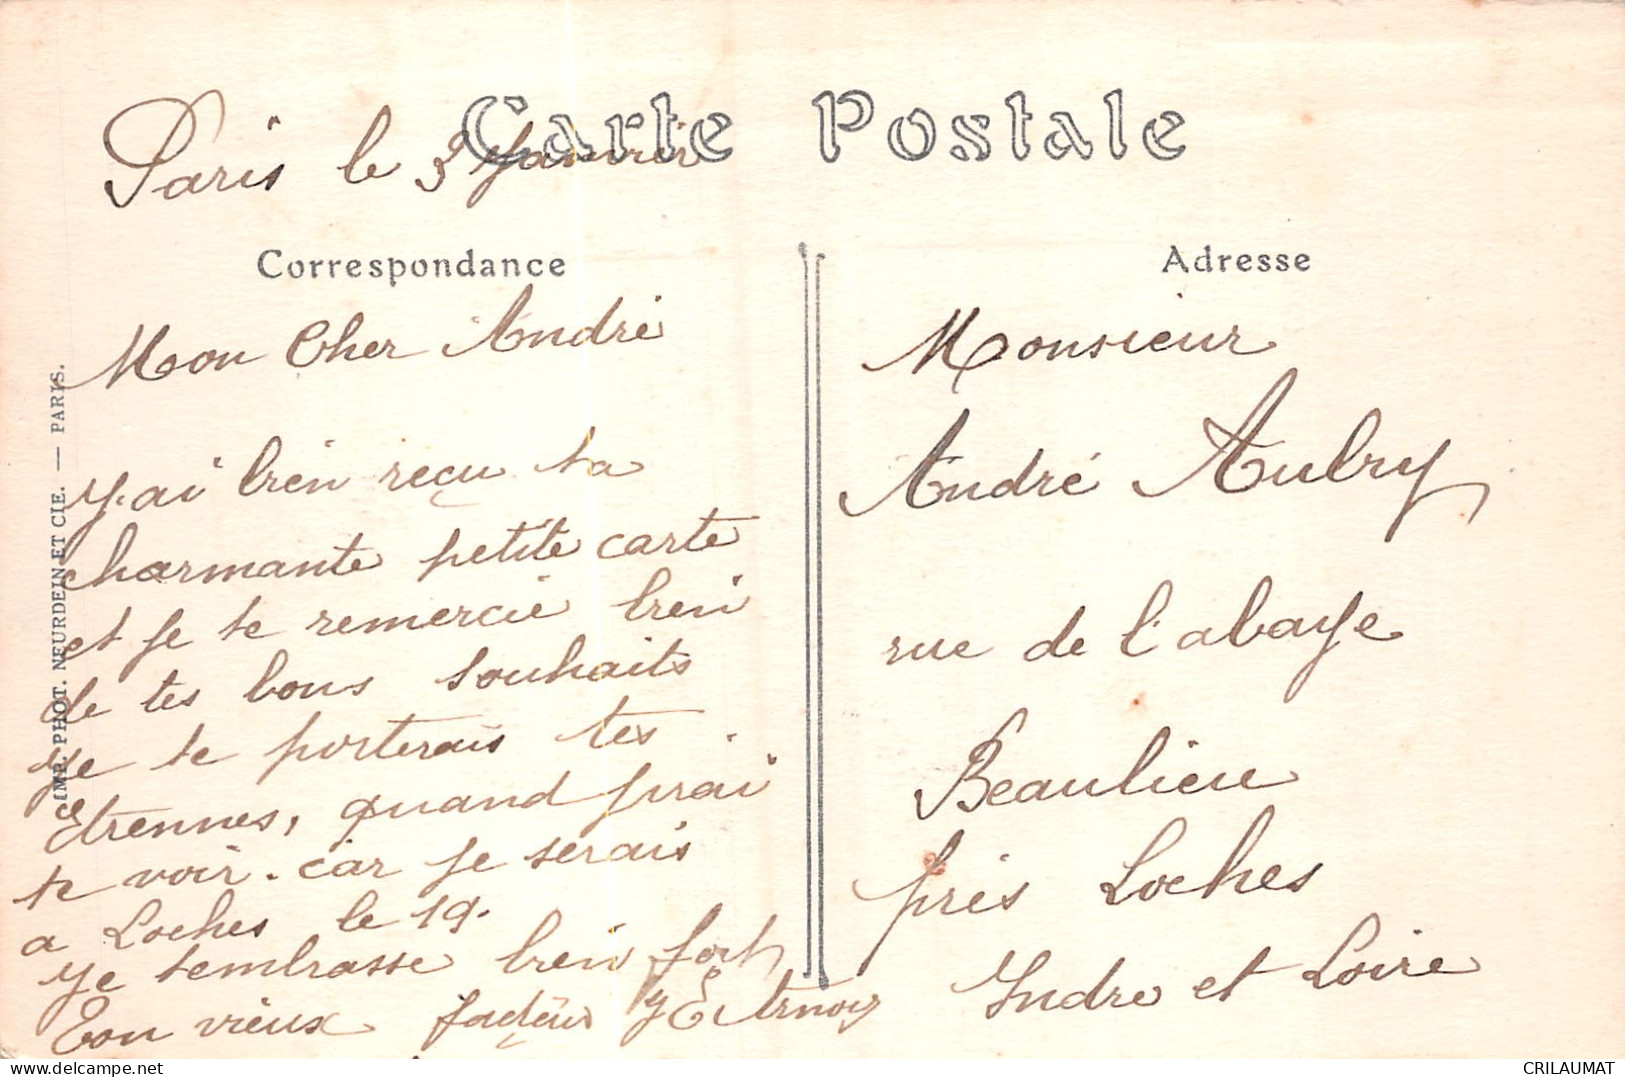 Carte Postale
Paris le 3 Janvier
Correspondance
Mon Cher André
J'ai bien reçu ta
charmante petite carte
et je te remercie bien
de tes bons souhaits
Je te porterais tes
Etrennes, quand j'irai
te voir. car je serais
a Loches le 19.
Je tembrasse bien fort
Ton vieux facteur
Adresse
Monsieur
André Aubry
rue de l'abaye
Beaulieu
près Loches
Indre et Loire
IMP. PHOT. NEURDEIN ET CIE. — PARIS.
CRILAUMAT